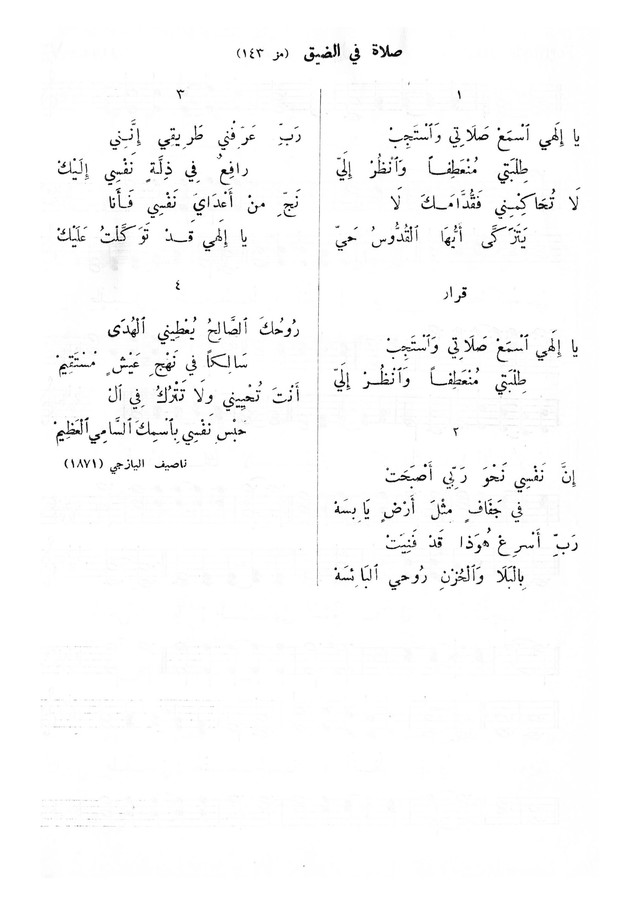 صلاة في الضيق (مز ١٤٣)
١
يا إِلَهي ٱسْمَعْ صَلَاتي وَٱسْتَجِبْ
طِلْبَتي مُنْعَطِفاً وَٱنْظُرْ إِلَيّ
لَا تُحَاكِمْنِي فَقُدَّامَكَ لَا
يَتَزَكَّى أَيُّهَا ٱلْقُدُّوسُ حَيّ
قرار
يا إِلَهي ٱسْمَعْ صَلَاتي وَٱسْتَجِبْ
طِلْبَتي مُنْعَطِفاً وَٱنْظُرْ إِلَيّ
٢
إِنَّ نَفْسِي نَحْوَ رَبِّي أَصْبَحَتْ
في جَفَافٍ مِثْلَ أَرْضٍ يَابِسَهْ
رَبِّ أَسْرِعْ هُوَذَا قَدْ فَنِيَتْ
بِٱلْبَلَا وَٱلْحُزْنِ رُوحي ٱلبَائِسَهْ
٣
رَبِّ عَرِّفْني طَرِيقي إِنَّنِي
رافِعٌ في ذِلَّةٍ نَفْسِي إِلَيْكْ
نَجِّ مِنْ أَعْدَايَ نَفْسِي فَأَنا
يا إِلهي قَدْ تَوَكَّلْتُ عَلَيْكْ
٤
رُوحُكَ ٱلصَّالِحُ يُعْطِيني ٱلْهُدَى
سَالِكاً في نَهْجِ عَيْشٍ مُسْتَقِيمْ
أَنْتَ تُحْيِيني ولَا تَتْرُكُ فِي ٱلْ
حَبْسِ نَفْسِي بِٱسْمِكَ ٱلسَّامِي ٱلْعَظِيمْ
ناصيف اليازجي (١٨٧١)